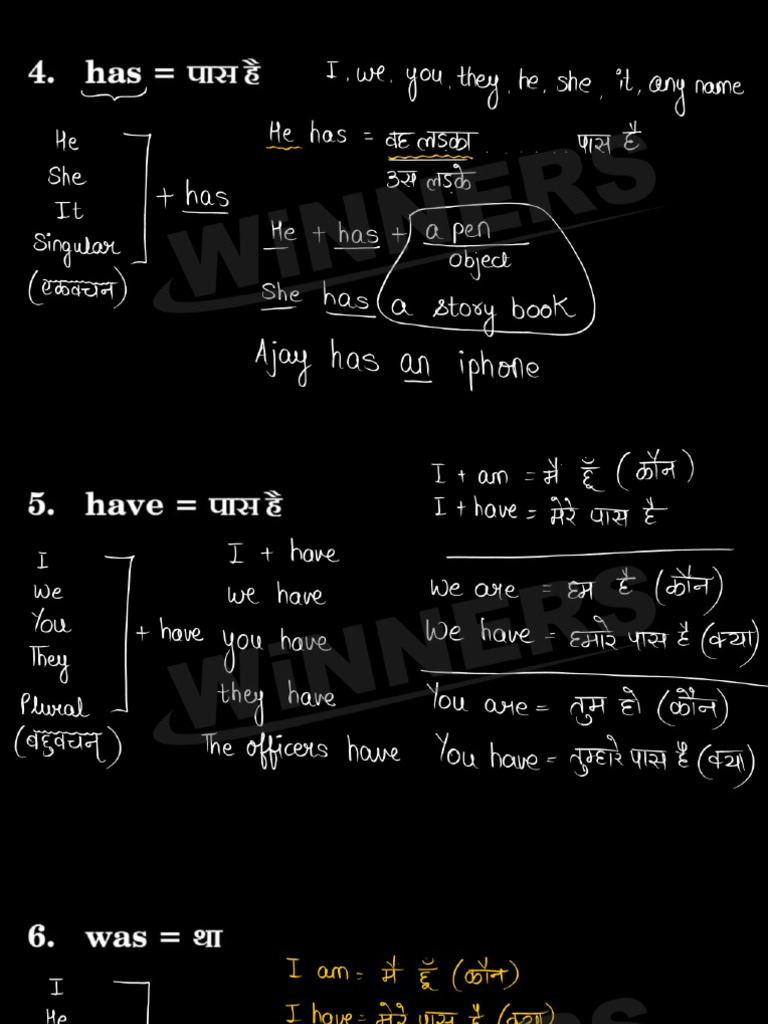 4. has = पास है
I, we, you, they, he, she, it, any name
He
She
It
Singular
(एकवचन)
+ has
He has = वह लड़का ....... पास है
उस लड़के
He + has + a pen
object
She has a story book
Ajay has an iphone
WiNNERS
5. have = पास है
I + am = मैं हूँ (कौन)
I + have = मेरे पास है
I
We
You
They
Plural
(बहुवचन)
+ have
I + have
we have
you have
they have
The officers have
We are = हम है (कौन)
We have = हमारे पास है (क्या)
You are = तुम हो (कौन)
You have = तुम्हारे पास है (क्या)
WiNNERS
6. was = था
I
He
I am = मैं हूँ (कौन)
I have = मेरे पास है (क्या)